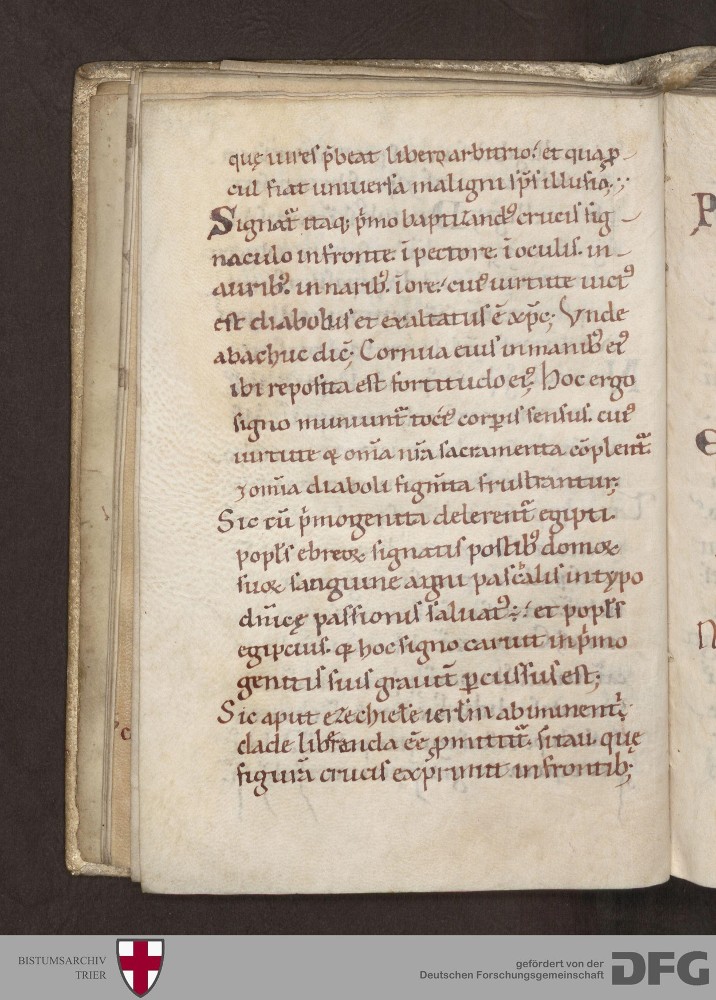 quę uires p̄beat libero arbitrio. et qua ꝓ-
cul fiat uniuersa maligni sp̄s illusio.
Signat̄ itaq; p̄mo baptizand᷒ crucis sig-
naculo in fronte. ī pectore. ī oculis. in-
aurib᷒. in narib᷒. ī ore. cui᷒ uirtute uict᷒
est diabolus et exaltatus ē xp̄c; Vnde
abachuc dic̄; Cornua eius in manib᷒ ei᷒
ibi reposita est fortitudo ei᷒; Hoc ergo
signo muniunt̄ corꝑis sensus. cui᷒
uirtute & om̄ia nr̄a sacramenta cōplent̄.
⁊ om̄ia diaboli figm̄ta frustrantur;
Sic cū p̄mogenita delerent̄ egipti.
popl̄s ebreoꝝ signatis postib᷒ domoꝝ
suoꝝ sanguine agni pascalis in typo
dn̄icę passionis saluat᷒. et popl̄s
egipcius. q̄ hoc signo caruit in p̄mo
genitis suis grauit̄ ꝑcussus est;
Sic aput ezechiele ierl̄m ab imminenti
clade liberanda ēē ꝓmittit̄. si tau. quę
figurā crucis exp̄rimit in frontib;
BISTUMSARCHIV
TRIER
gefördert von der
Deutschen Forschungsgemeinschaft
DFG